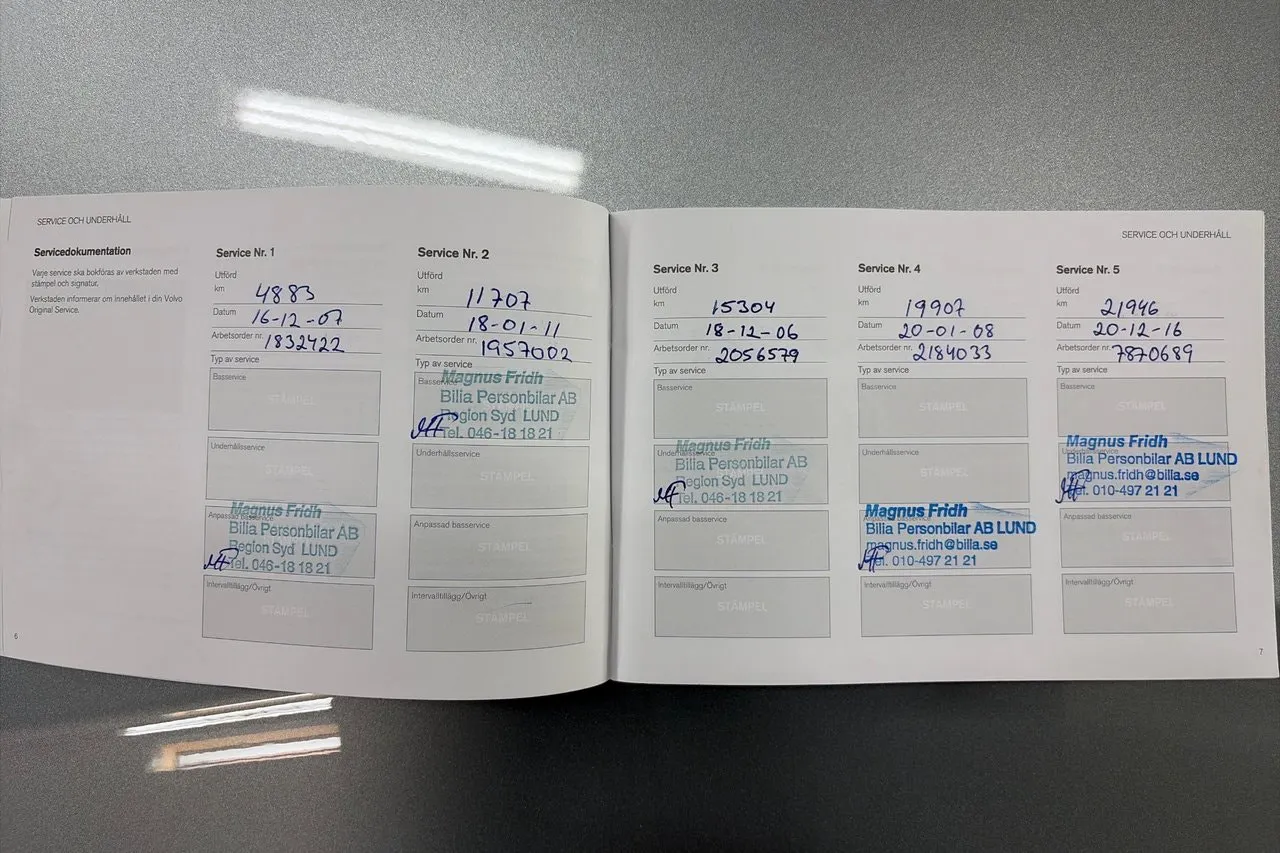 SERVICE OCH UNDERHÅLL
Servicedokumentation
Varje service ska bokföras av verkstaden med
stämpel och signatur.
Verkstaden informerar om innehållet i din Volvo
Original Service.
6
Service Nr. 1
Utförd
km 4883
Datum 16-12-07
Arbetsorder nr. 1832422
Typ av service
Basservice
STÄMPEL
Underhållsservice
STÄMPEL
Anpassad basservice
Magnus Fridh
Bilia Personbilar AB
Region Syd LUND
Tel. 046-18 18 21
Intervalltillägg/Övrigt
STÄMPEL
Service Nr. 2
Utförd
km 11707
Datum 18-01-11
Arbetsorder nr. 1957002
Typ av service
Basservice
Magnus Fridh
Bilia Personbilar AB
Region Syd LUND
Tel. 046-18 18 21
Underhållsservice
STÄMPEL
Anpassad basservice
STÄMPEL
Intervalltillägg/Övrigt
STÄMPEL
SERVICE OCH UNDERHÅLL
Service Nr. 3
Utförd
km 15304
Datum 18-12-06
Arbetsorder nr. 2056579
Typ av service
Basservice
STÄMPEL
Underhållsservice
Magnus Fridh
Bilia Personbilar AB
Region Syd LUND
Tel. 046-18 18 21
Anpassad basservice
STÄMPEL
Intervalltillägg/Övrigt
STÄMPEL
Service Nr. 4
Utförd
km 19907
Datum 20-01-08
Arbetsorder nr. 2184033
Typ av service
Basservice
STÄMPEL
Underhållsservice
STÄMPEL
Anpassad basservice
Magnus Fridh
Bilia Personbilar AB LUND
magnus.fridh@bilia.se
Tel. 010-497 21 21
Intervalltillägg/Övrigt
STÄMPEL
Service Nr. 5
Utförd
km 21946
Datum 20-12-16
Arbetsorder nr. 7870689
Typ av service
Basservice
STÄMPEL
Underhållsservice
Magnus Fridh
Bilia Personbilar AB LUND
magnus.fridh@bilia.se
Tel. 010-497 21 21
Anpassad basservice
STÄMPEL
Intervalltillägg/Övrigt
STÄMPEL
7